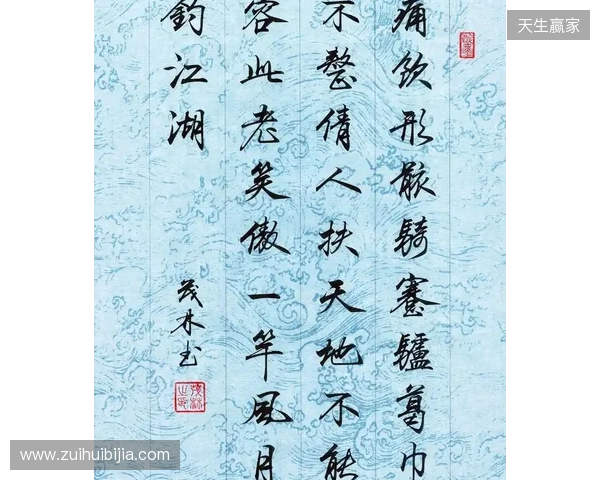 天生赢家
痛飲形骸騎蹇驢葛巾
不整倩人扶天地不能
容此老笑傲一竿風月
釣江湖
茂林书
www.zuihuibijia.com